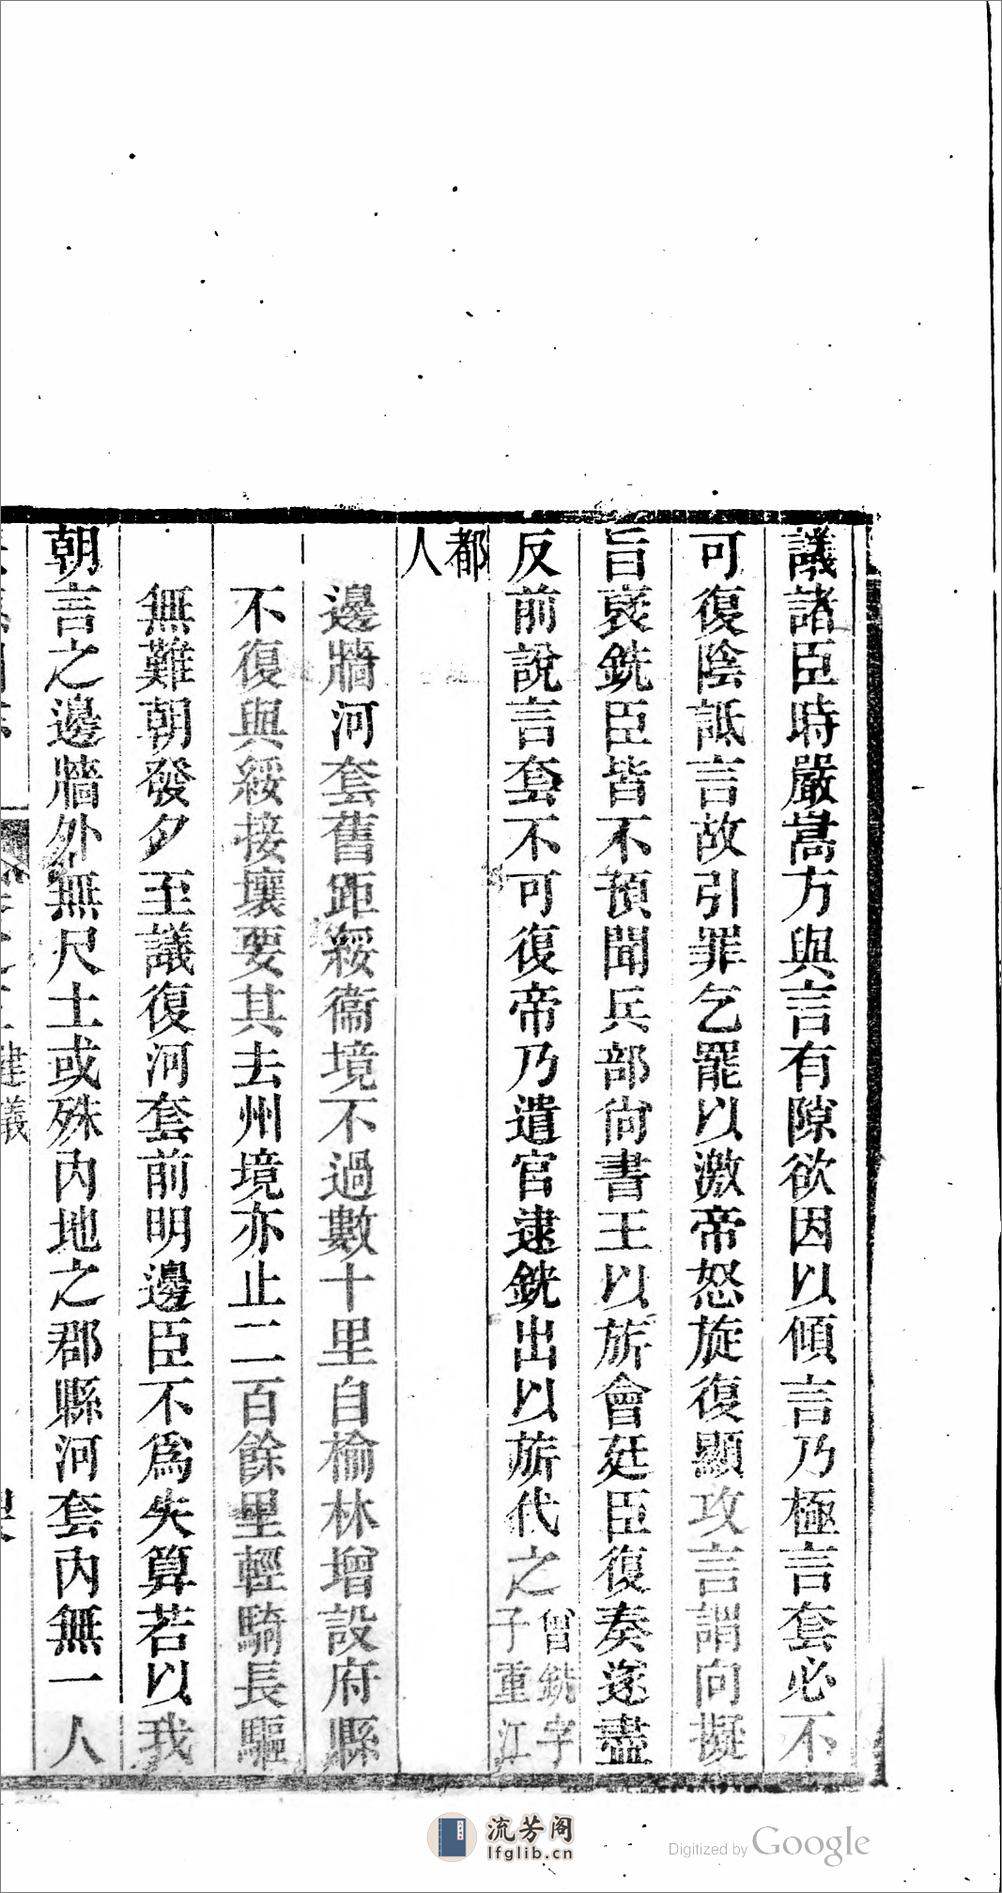 議諸臣時嚴嵩方與言有隙欲因以傾言乃極言套必不
可復陰詆言故引罪乞罷以激帝怒旋復顯攻言謂向擬
旨褒銑臣皆不預聞兵部尚書王以旂會廷臣復奏遂盡
反前說言套不可復帝乃遣官逮銑出以旂代之曾銑字子重江
都人
邊牆河套舊距綏衞境不過數十里自榆林增設府縣
不復與綏接壤要其去州境亦止二百餘里輕騎長驅
無難朝發夕至議復河套前明邊臣不爲失算若以我
朝言之邊牆外無尺土或殊內地之郡縣河套內無一人
建議
流芳阁
lfglib.cn
Digitized by Google